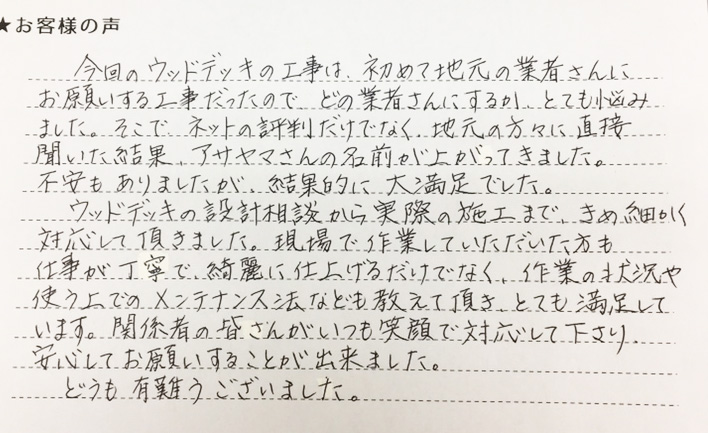 ★お客様の声
今回のウッドデッキの工事は、初めて地元の業者さんに
お願いする工事だったので、どの業者さんにするか、とても悩み
ました。そこで、ネットの評判だけでなく、地元の方々に直接
聞いた結果、アサヤマさんの名前が上がってきました。
不安もありましたが、結果的に大満足でした。
ウッドデッキの設計相談から実際の施工まで、きめ細かく
対応して頂きました。現場で作業していただいた方も
仕事が丁寧で、綺麗に仕上げるだけでなく、作業の状況や
使う上でのメンテナンス法なども教えて頂き、とても満足して
います。関係者の皆さんがいつも笑顔で対応して下さり、
安心してお願いすることが出来ました。
どうも有難うございました。